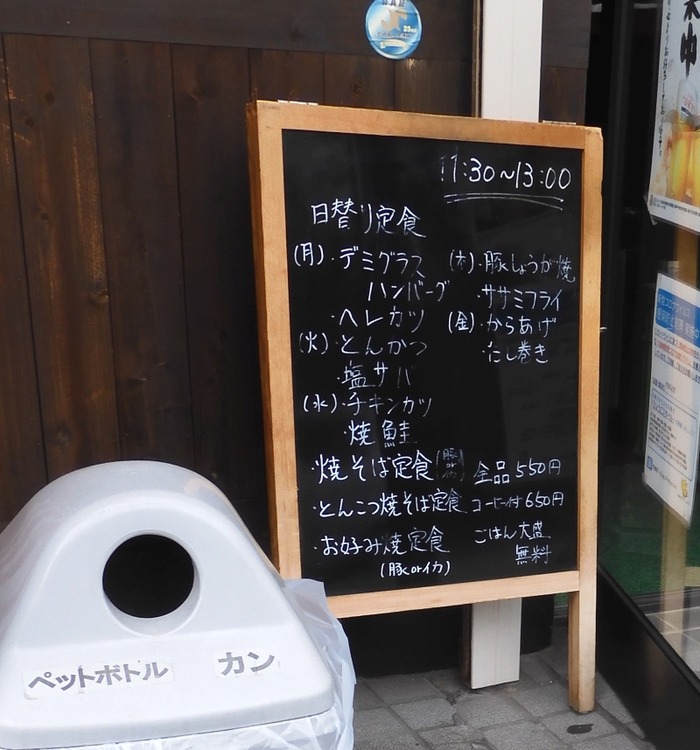 11:30~13:00
日替り定食
(月)・デミグラス
ハンバーグ
・ヘレカツ
(火)・とんかつ
・塩サバ
(水)・チキンカツ
・焼鮭
(木)・豚しょうが焼
・ササミフライ
(金)・からあげ
・だし巻き
・焼そば定食(豚orイカ)
・とんこつ焼そば定食
・お好み焼定食
(豚orイカ)
全品550円
コーヒー付650円
ごはん大盛
無料
ペットボトル カン
中